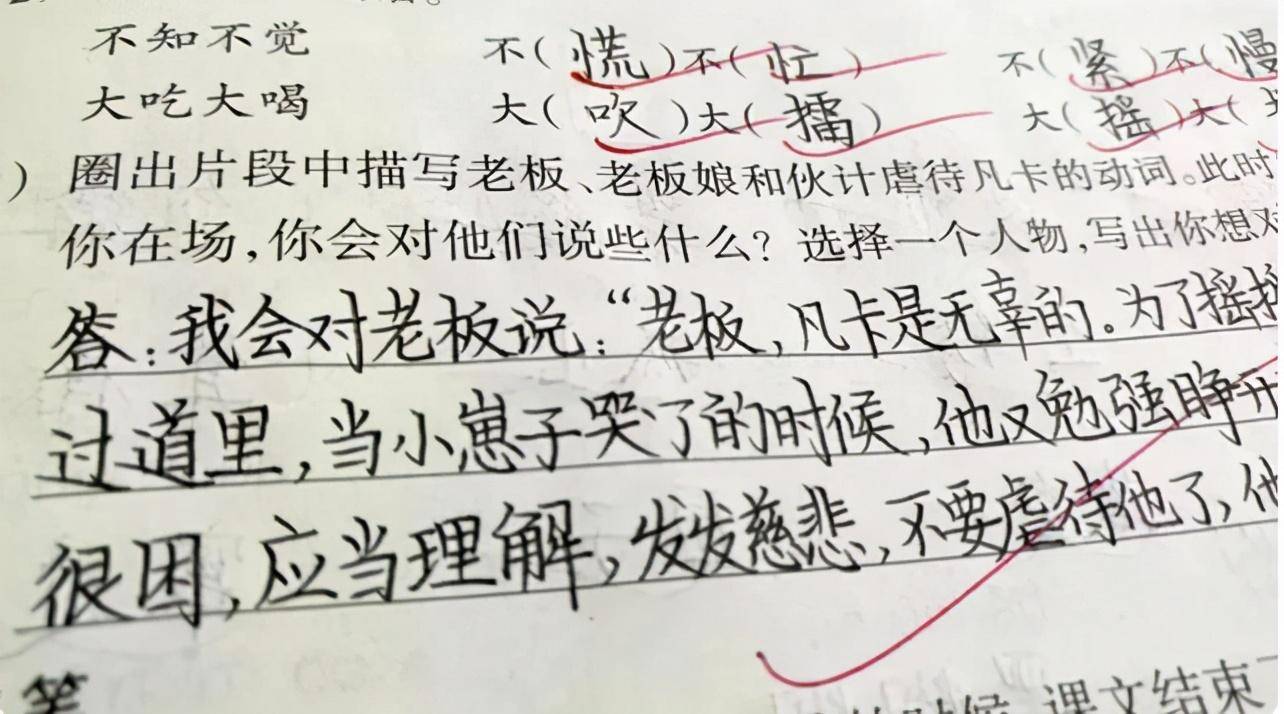 不知不觉 不( 慌 )不( 忙 ) 不( 紧 )不( 慢
大吃大喝 大( 吹 )大( 擂 ) 大( 摇 )大(
)圈出片段中描写老板、老板娘和伙计虐待凡卡的动词。此时
你在场,你会对他们说些什么? 选择一个人物,写出你想对
答:我会对老板说:“老板,凡卡是无辜的。为了摇摇
过道里,当小崽子哭了的时候,他又勉强睁开
很困,应当理解,发发慈悲,不要虐待他了,他
答
的时候,课文结束